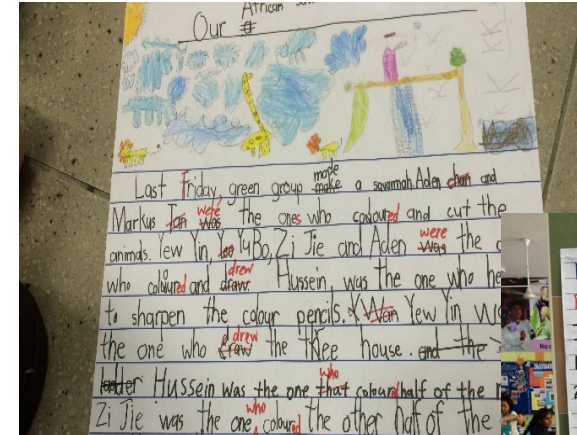 Our African
Last Friday, green group make made a savannah. Aden chan and
Markus Tan was were the ones who coloured and cut the
animals. Yew Yin, Yeo Yu Bo, Zi Jie and Aden was were the
who coloured and draw drew Hussein was the one who he
to sharpen the colour pencils. Wan Yew Yin
the one who draw drew the tree house. and the
Hussein was the one that who coloured half of the
Zi Jie was the one who coloured the other half of the